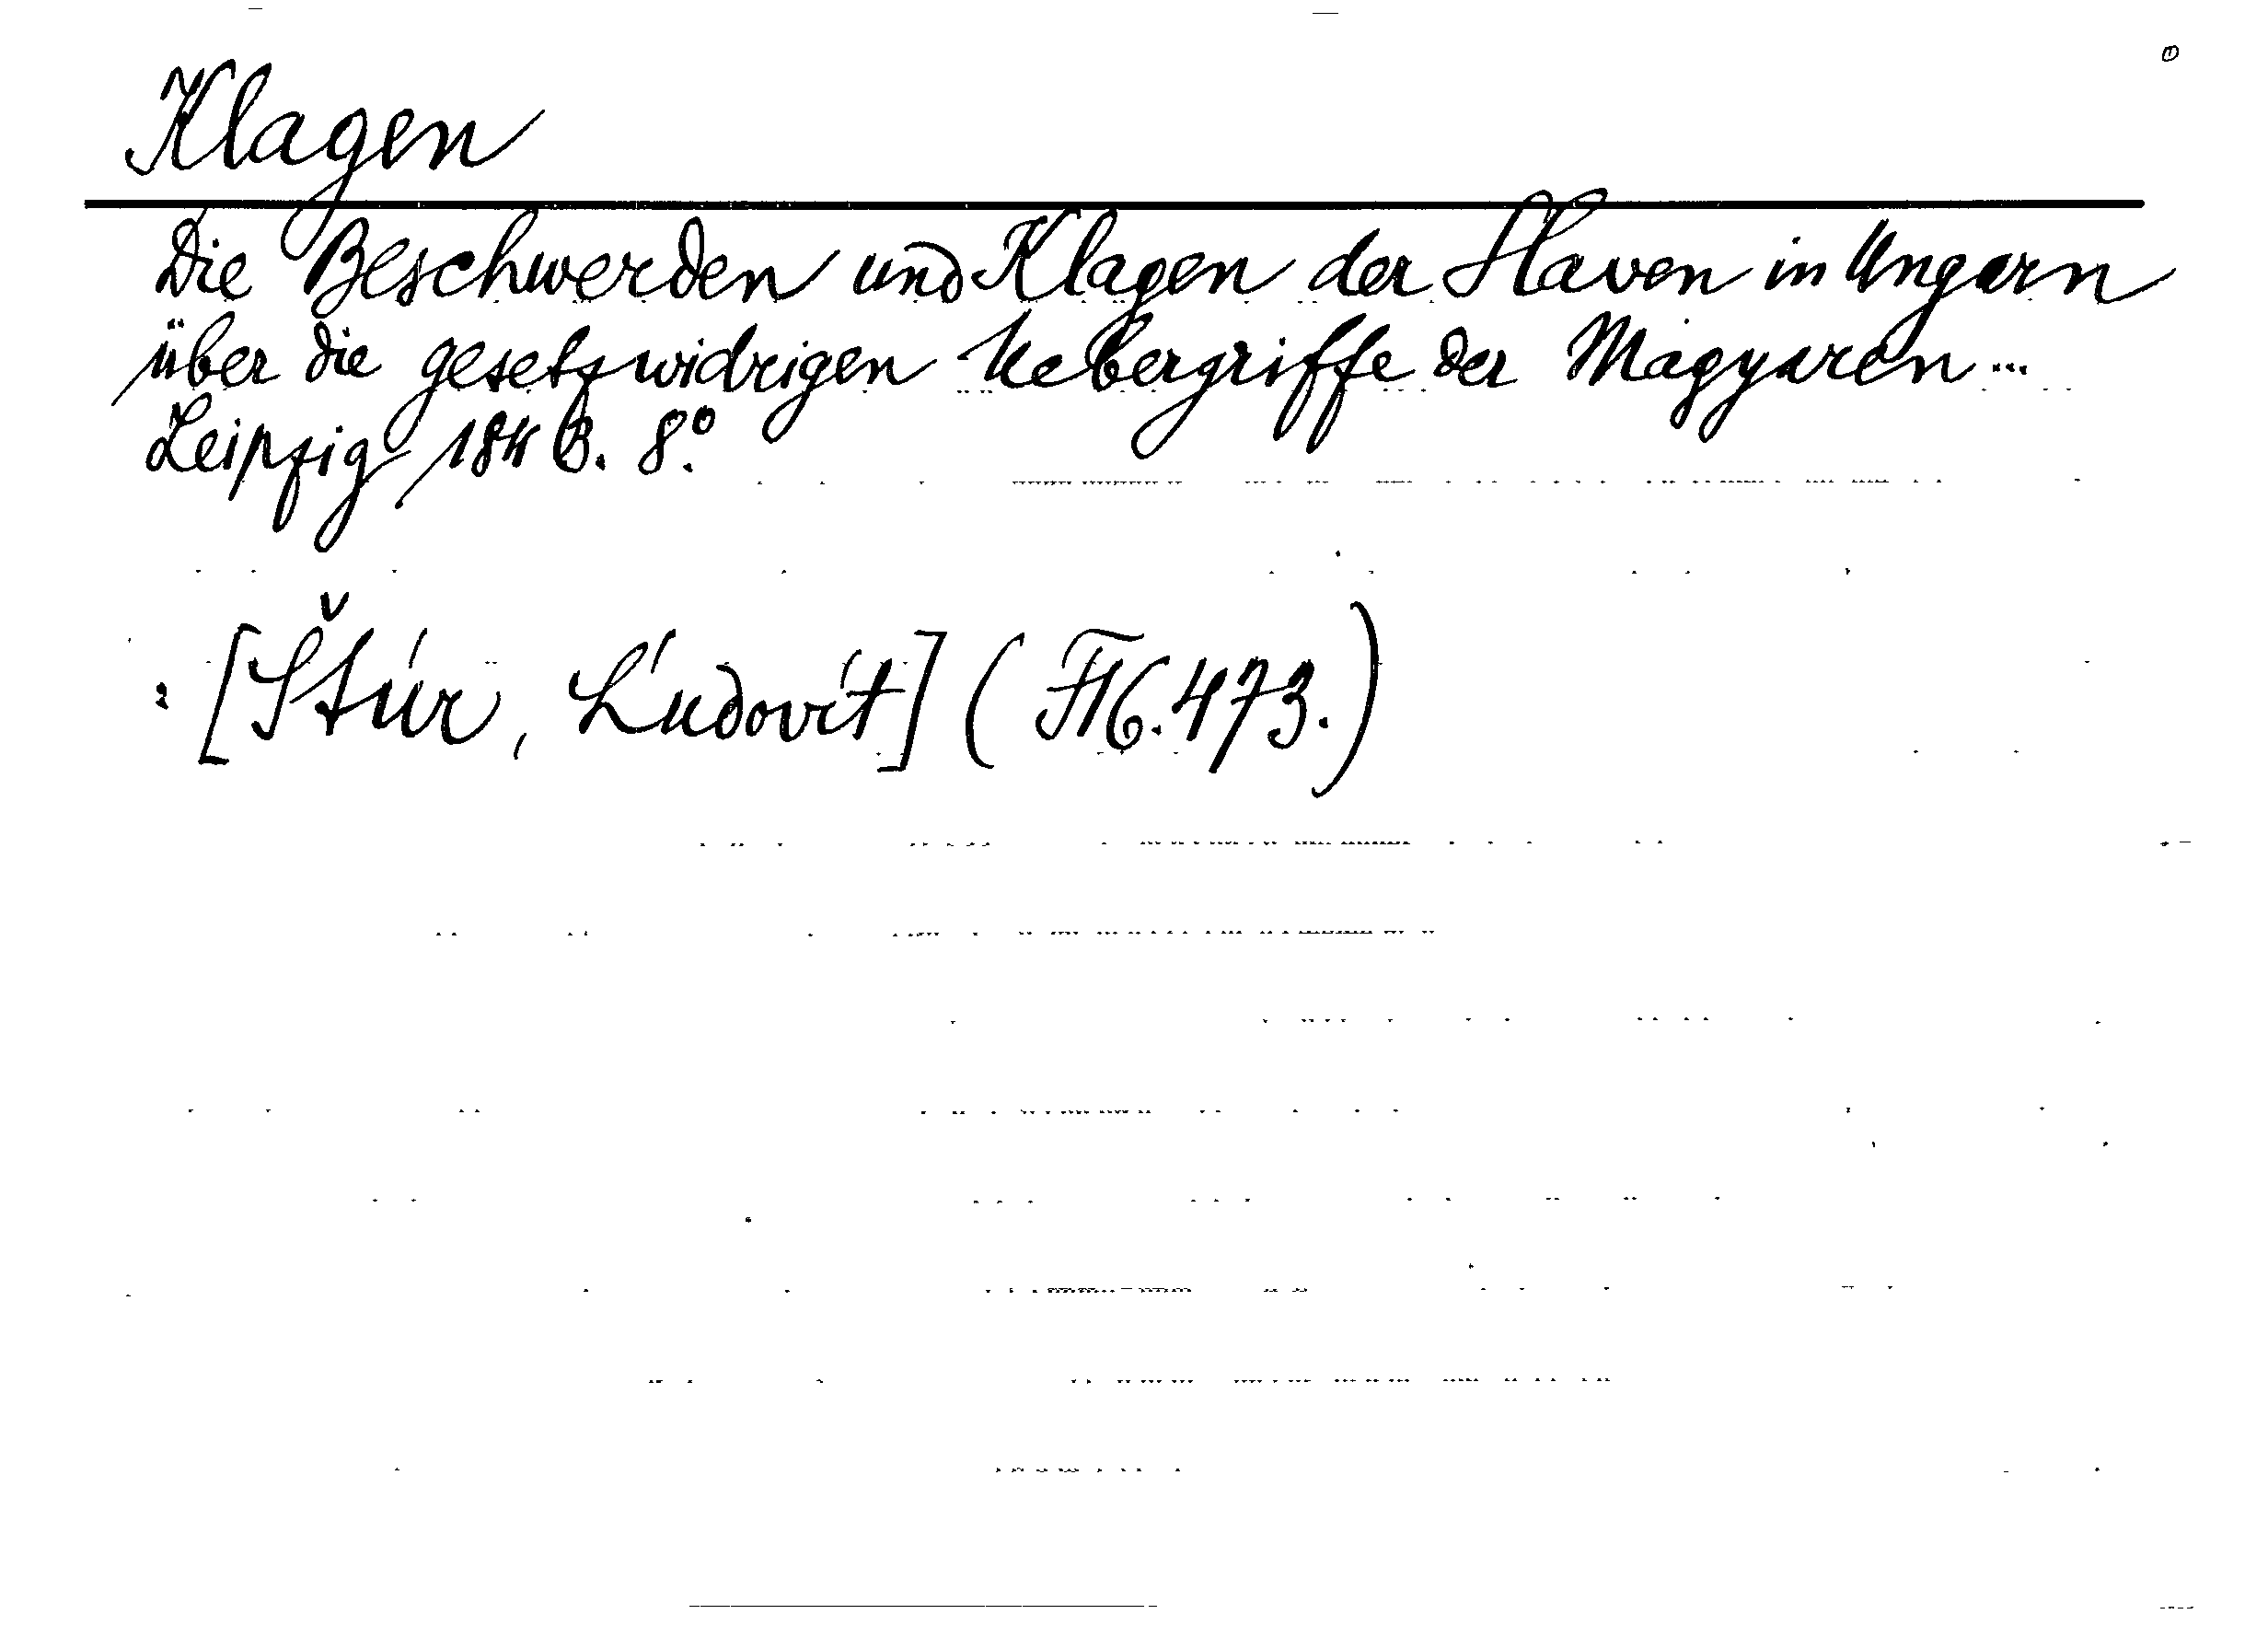 Klagen
Die Beschwerden und Klagen der Slaven in Ungarn
über die gesetzwidrigen Uebergriffe der Magyaren...
Leipzig 1843. 8°.
: [Štúr, Ĺudovít] ( 473.)